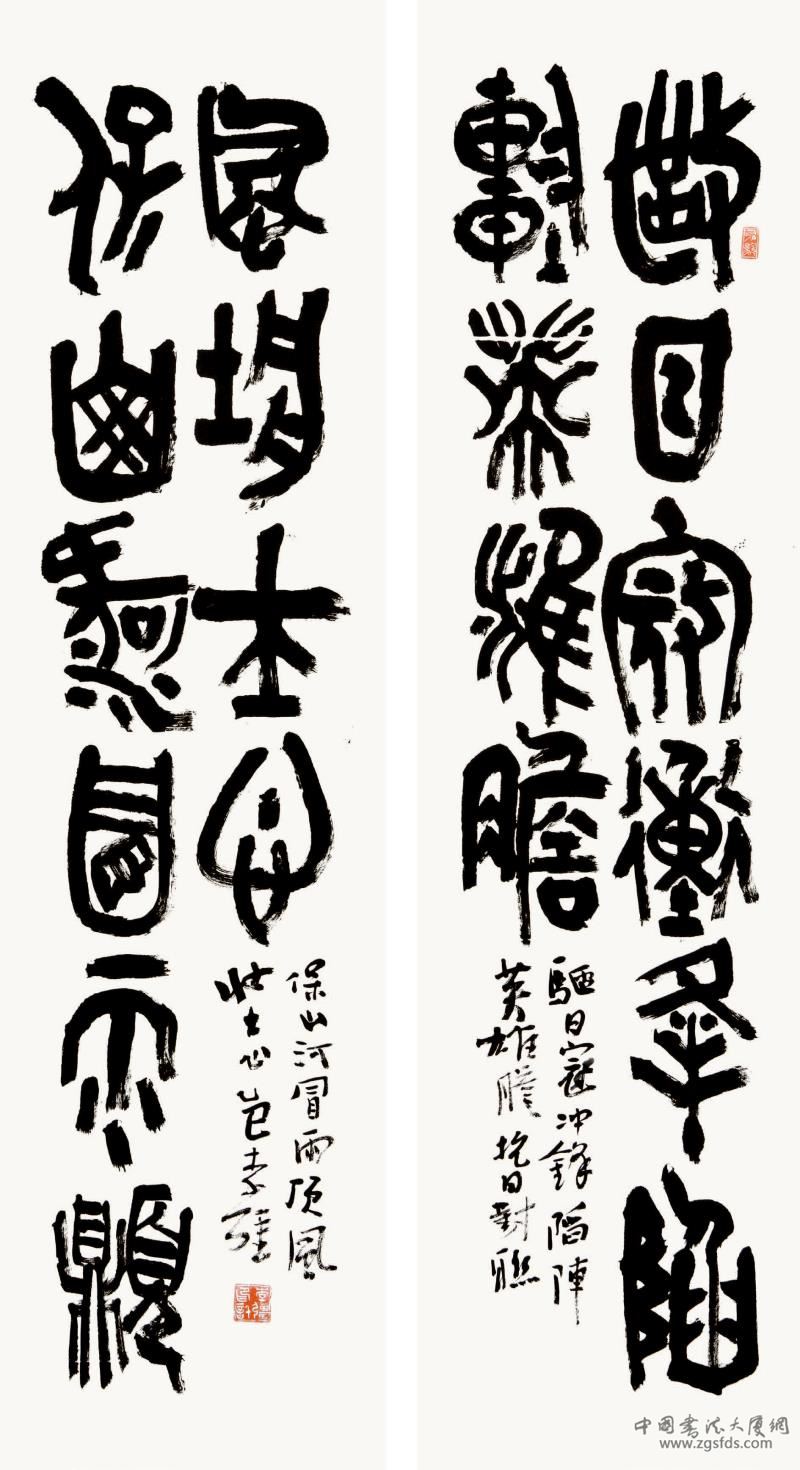 驅日寇衝夆陷
陣英雄膽
驅日寇冲鋒陷陣
英雄膽抗日對聯
保山河冒雨頂
風壯士心
保山河冒雨頂風
壮士心
中國書法大廈網
www.zgsfds.com